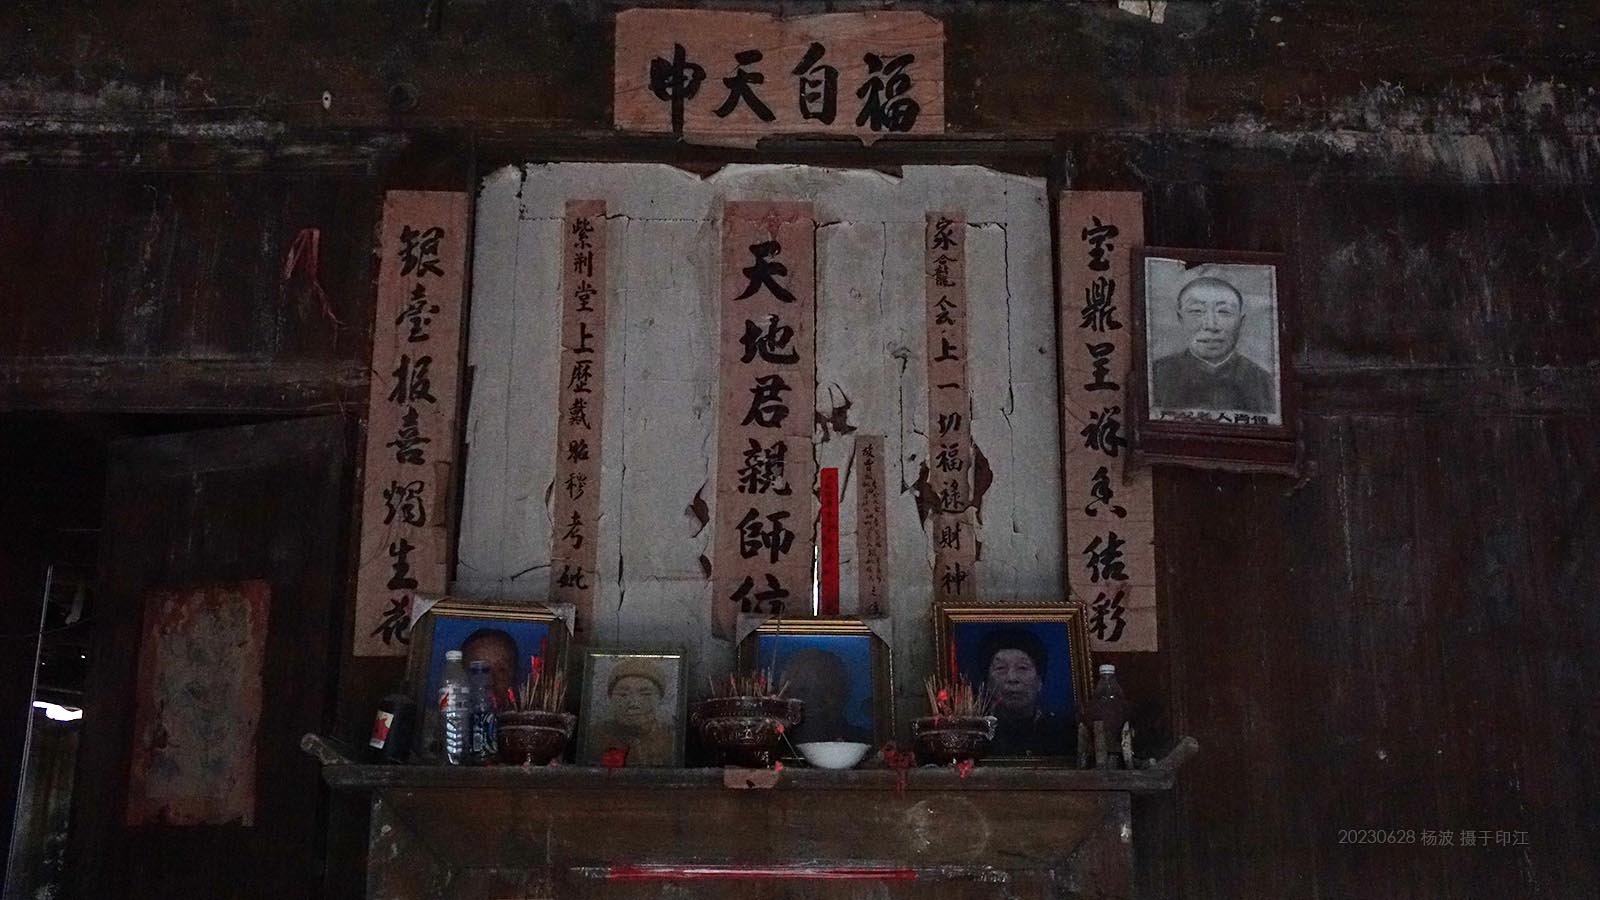 福自天申
宝鼎呈祥香结彩
家龕会上一切福祿財神
天地君親師位
紫荆堂上歷戴昭穆考妣
銀臺报喜燭生花
老人肖像
20230628 杨波 摄于印江